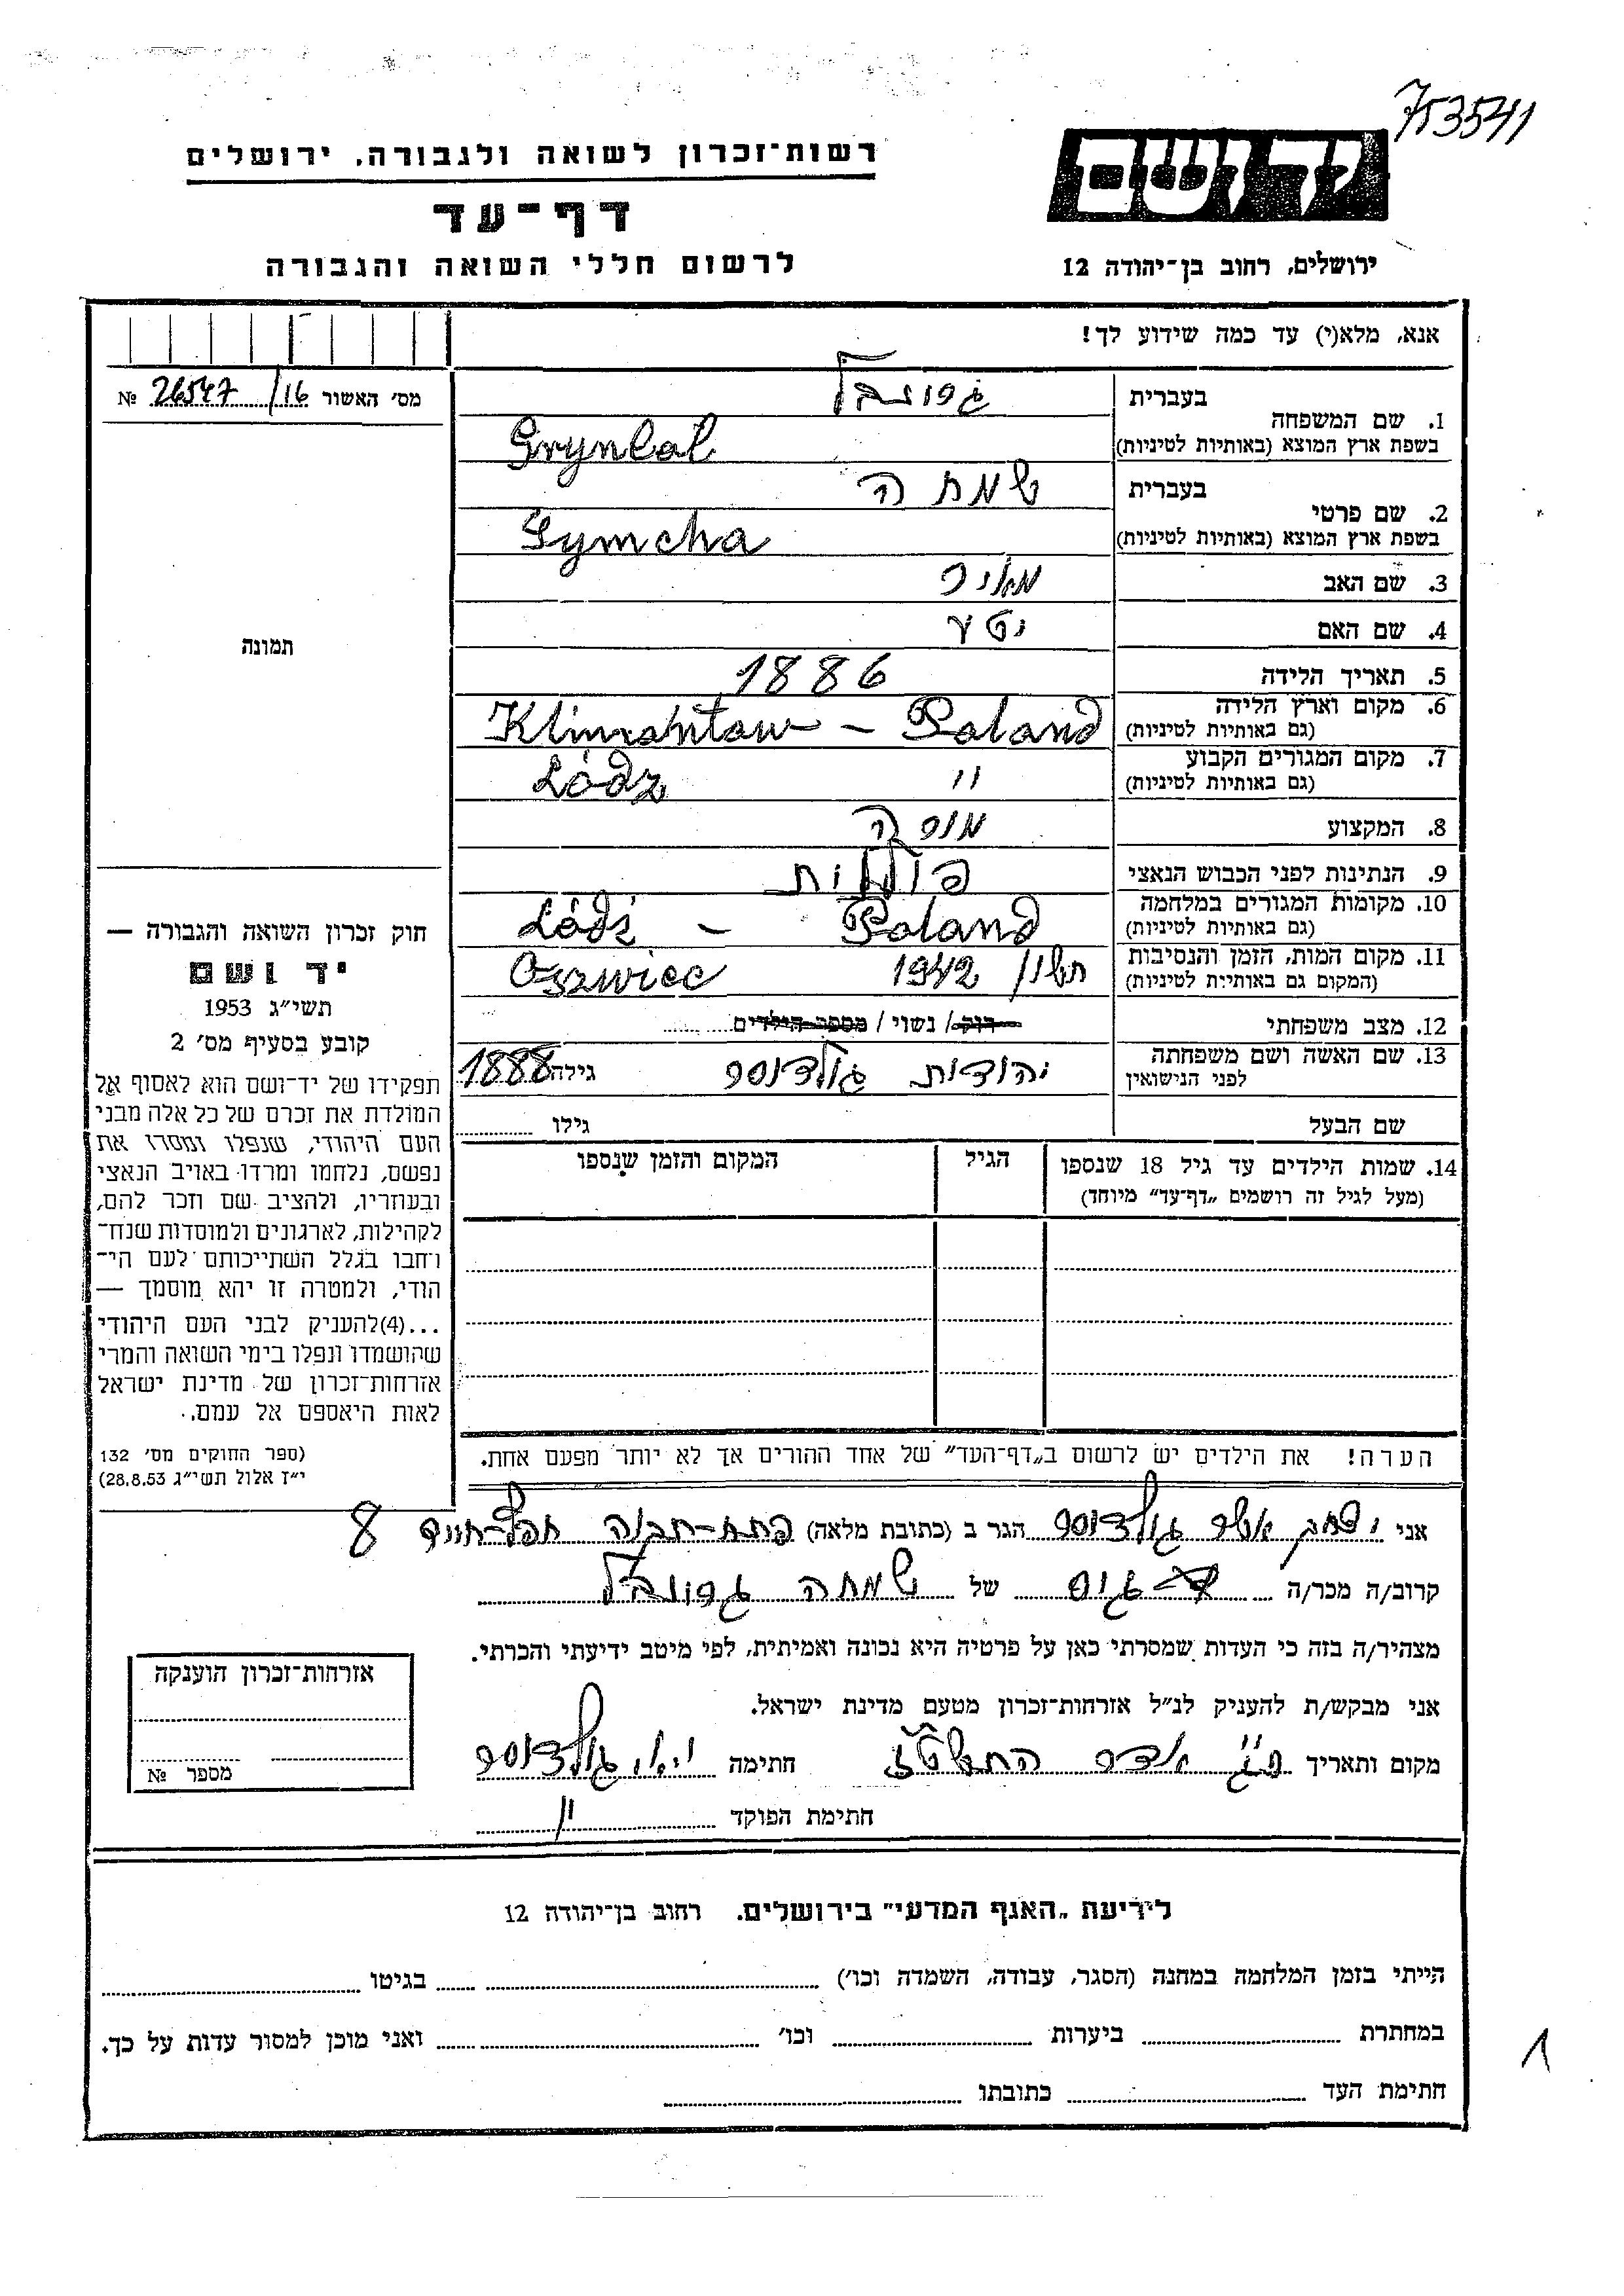 753541
רשות־זכרון לשואה ולגבורה, ירושלים
יד ושם
דף־עד
לרשום חללי השואה והגבורה
ירושלים, רחוב בן־יהודה 12
אנא, מלא(י) עד כמה שידוע לך!
מס׳ האשור 16/26547 №
1. שם המשפחה
בעברית
בשפת ארץ המוצא (באותיות לטיניות) Grynbal
2. שם פרטי
בעברית שמחה
בשפת ארץ המוצא (באותיות לטיניות) Symcha
3. שם האב מאיר
4. שם האם יטע
5. תאריך הלידה 1886
6. מקום וארץ הלידה
(גם באותיות לטיניות) – Poland
7. מקום המגורים הקבוע
(גם באותיות לטיניות) " Łódz
8. המקצוע מורה
9. הנתינות לפני הכבוש הנאצי פולנית
10. מקומות המגורים במלחמה
(גם באותיות לטיניות) Łódź – Poland
11. מקום המות, הזמן והנסיבות
(המקום גם באותיות לטיניות) 1942 Oszwiec
12. מצב משפחתי רוק / נשוי / מספר הילדים
13. שם האשה ושם משפחתה
לפני הנישואין יהודית גולדוסר גילה 1888
שם הבעל גילו
14. שמות הילדים עד גיל 18 שנספו
(מעל לגיל זה רושמים „דף־עד״ מיוחד)
הגיל
המקום והזמן שנספו
הערה! את הילדים יש לרשום ב„דף־העד״ של אחד ההורים אך לא יותר מפעם אחת.
תמונה
חוק זכרון השואה והגבורה —
יד ושם
תשי״ג 1953
קובע בסעיף מס׳ 2
תפקידו של יד־ושם הוא לאסוף אל
המולדת את זכרם של כל אלה מבני
העם היהודי, שנפלו ומסרו את
נפשם, נלחמו ומרדו באויב הנאצי
ובעוזריו, ולהציב שם וזכר להם,
לקהילות, לארגונים ולמוסדות שנח־
רחבו בגלל השתייכותם לעם הי־
הודי, ולמטרה זו יהא מוסמך —
...(4)להעניק לבני העם היהודי
שהושמדו ונפלו בימי השואה והמרי
אזרחות־זכרון של מדינת ישראל
לאות היאספם אל עמם.
(ספר החוקים מס׳ 132
י״ז אלול תשי״ג 28.8.53)
אני גולדוסר הגר ב (כתובת מלאה) פתח-תקוה חפץ-חיים 8
קרוב/ה מכר/ה גיס של שמחה
מצהיר/ה בזה כי העדות שמסרתי כאן על פרטיה היא נכונה ואמיתית, לפי מיטב ידיעתי והכרתי.
אני מבקש/ת להעניק לנ״ל אזרחות־זכרון מטעם מדינת ישראל.
מקום ותאריך אדר חתימה גולדוסר
חתימת הפוקד
אזרחות־זכרון הוענקה
מספר №
לידיעת „האגף המדעי״ בירושלים. רחוב בן־יהודה 12
הייתי בזמן המלחמה במחנה (הסגר, עבודה, השמדה וכו׳) בגיטו
במחתרת ביערות וכו׳ ואני מוכן למסור עדות על כך.
חתימת העד כתובתו
1